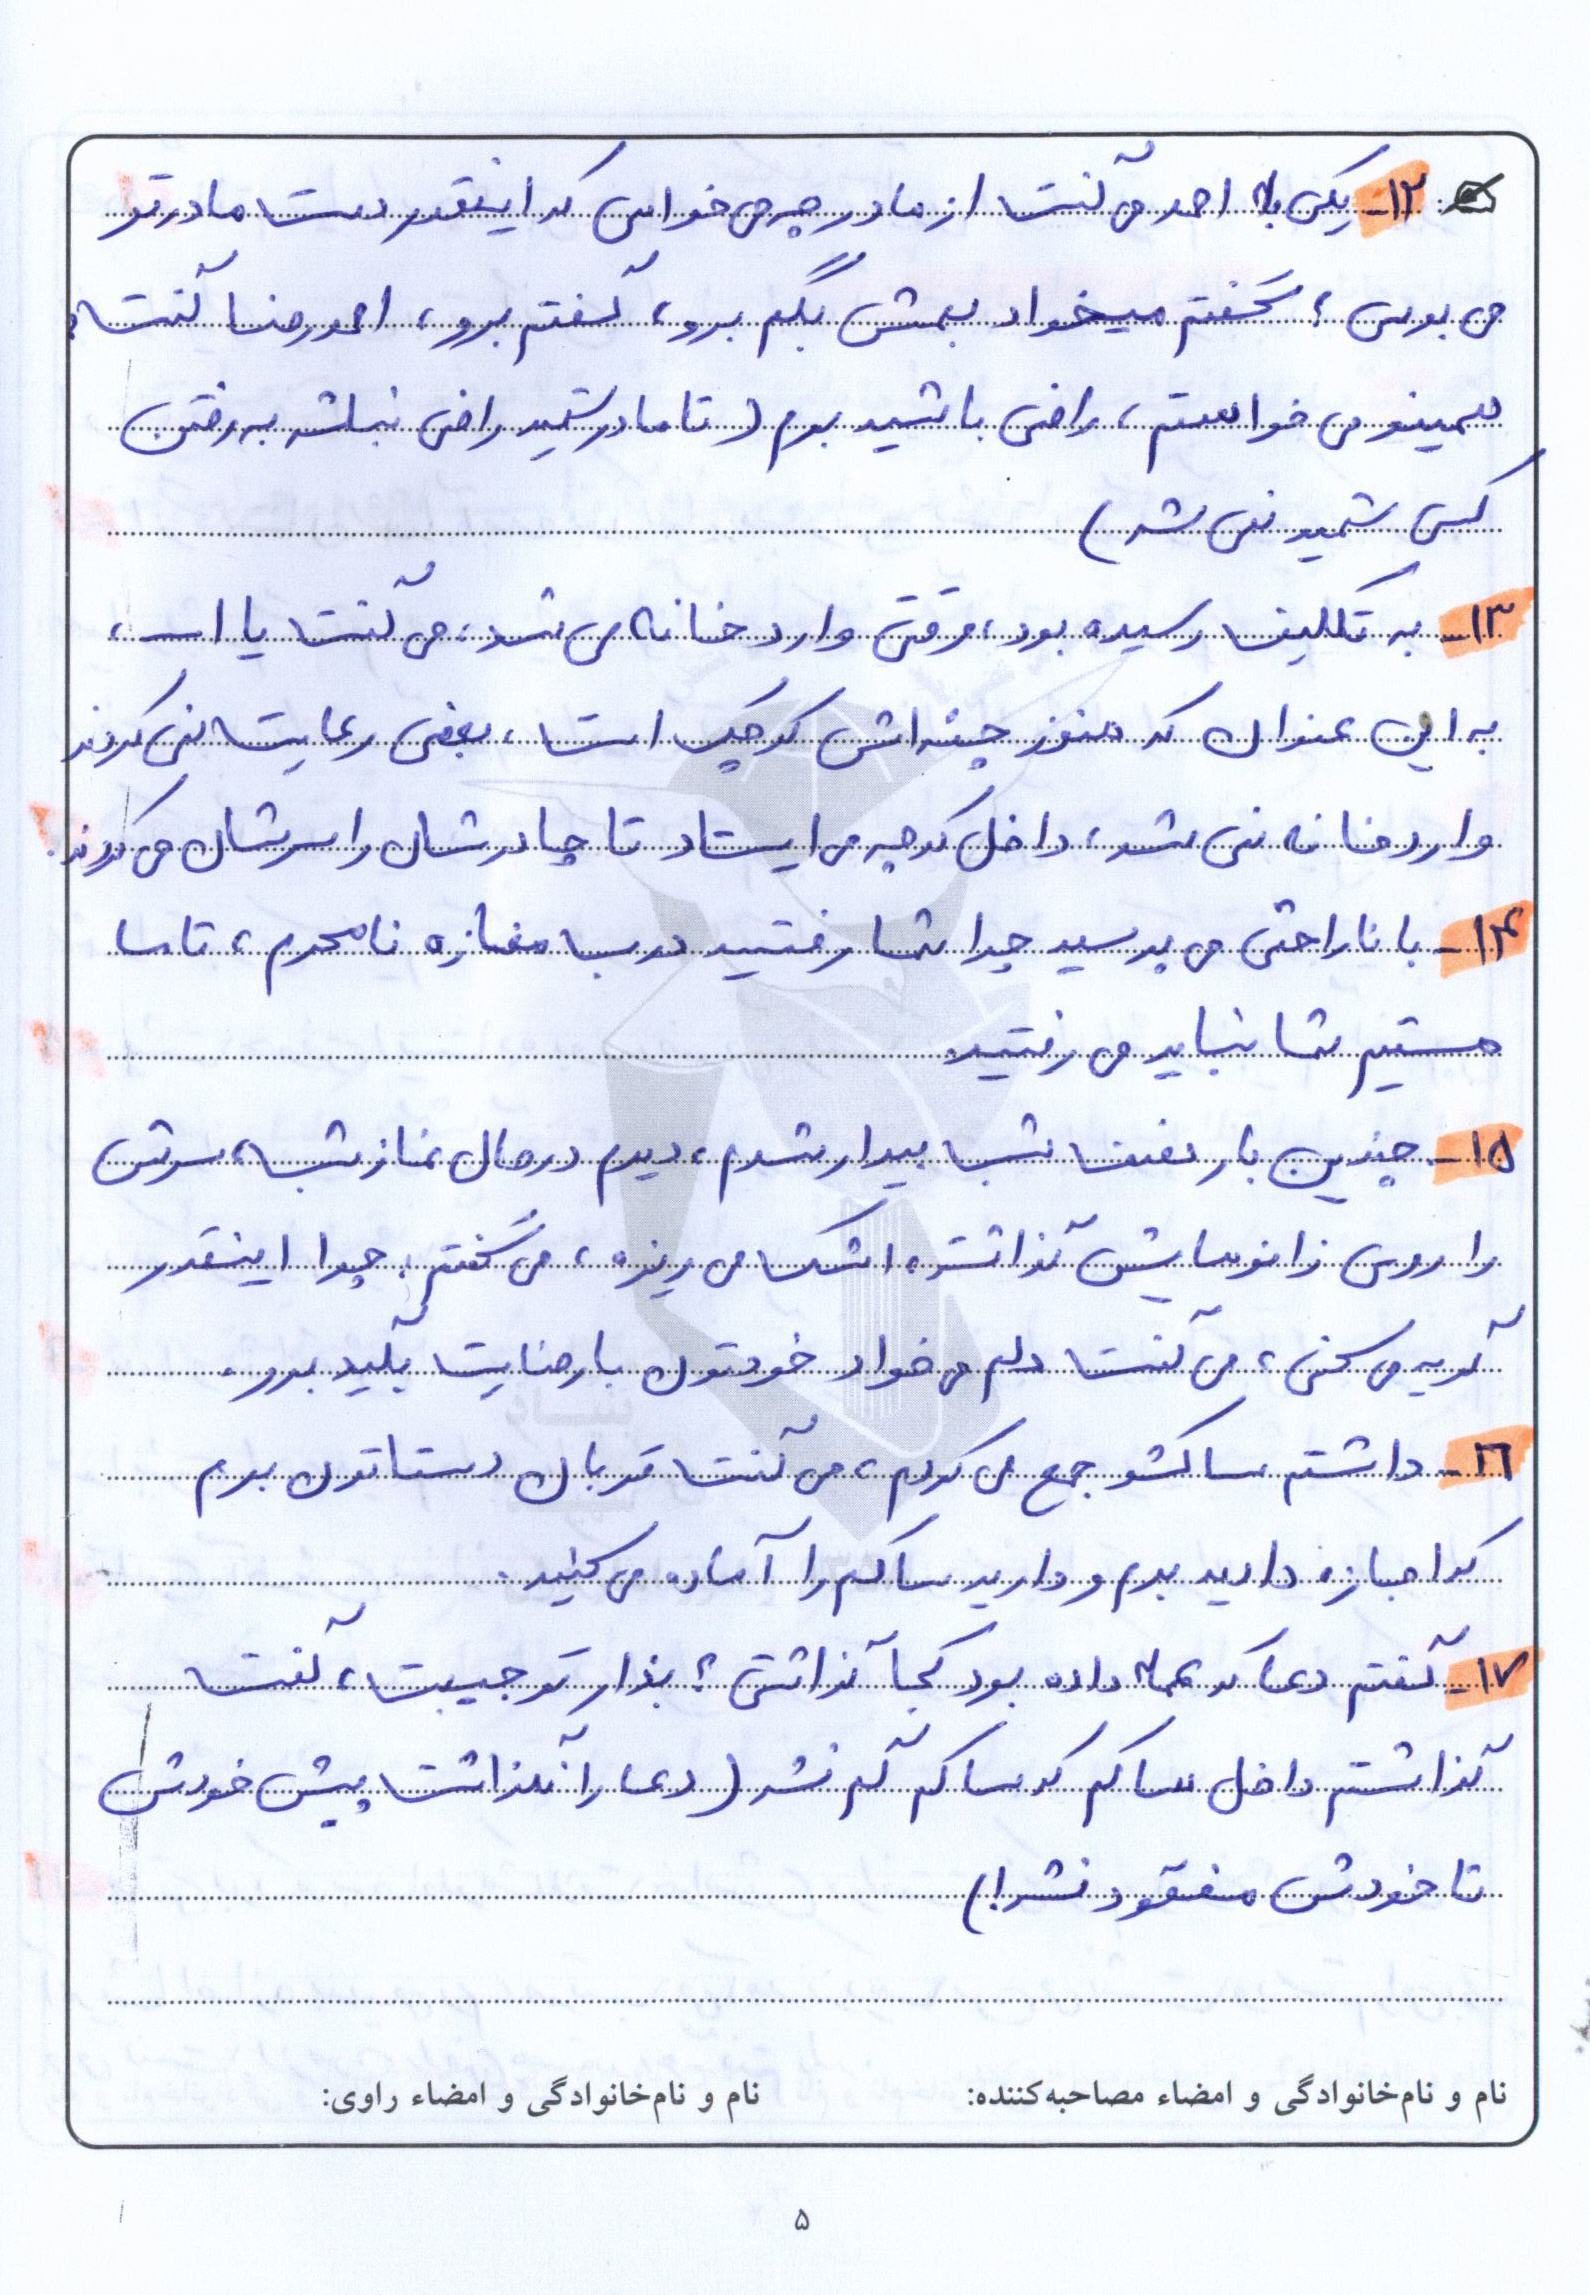 ۱۲- یکی به احمد می‌گفت از مادر چه می‌خوای که اینقدر دست مادرتو
می‌بوسی؟ گفتم میخواد بهش بگم برو، گفتم برو، احمدرضا گفت:
همینو می‌خواستم، راضی باشید برم (تا مادر شهید راضی نباشه به رفتن
کسی شهید نمی‌شه)
۱۳- به تکلیف رسیده بود، وقتی وارد خانه می‌شد، می‌گفت یا الله،
به این عنوان که هنوز جثه‌اش کوچک است، بعضی رعایت نمی‌کردند
وارد خانه نمی‌شد، داخل کوچه می‌ایستاد تا چادرشان را سرشان می‌کردند.
۱۴- با ناراحتی می‌پرسید چرا شما رفتید درب مغازه نامحرم، تا ما
هستیم شما نباید می‌رفتید.
۱۵- چندین بار نصف شب بیدار شدم، دیدم در حال نماز شب، سرش
را روی زانوهایش گذاشته، اشک می‌ریزه، می‌گفتم: چرا اینقدر
گریه می‌کنی، می‌گفت دلم می‌خواد خودتون با رضایت بگید برو.
۱۶- داشتم ساکشو جمع می‌کردم، می‌گفت قربان دستاتون برم
که اجازه دادید برم و دارید ساکم را آماده می‌کنید.
۱۷- گفتم دعا که عمه داده بود کجا گذاشتی؟ بذار تو جیبت، گفت
گذاشتم داخل ساکم که ساکم گم نشه (دعا را نگذاشت پیش خودش
تا خودش مفقود نشه!)
نام و نام‌خانوادگی و امضاء مصاحبه‌کننده: نام و نام‌خانوادگی و امضاء راوی:
۵